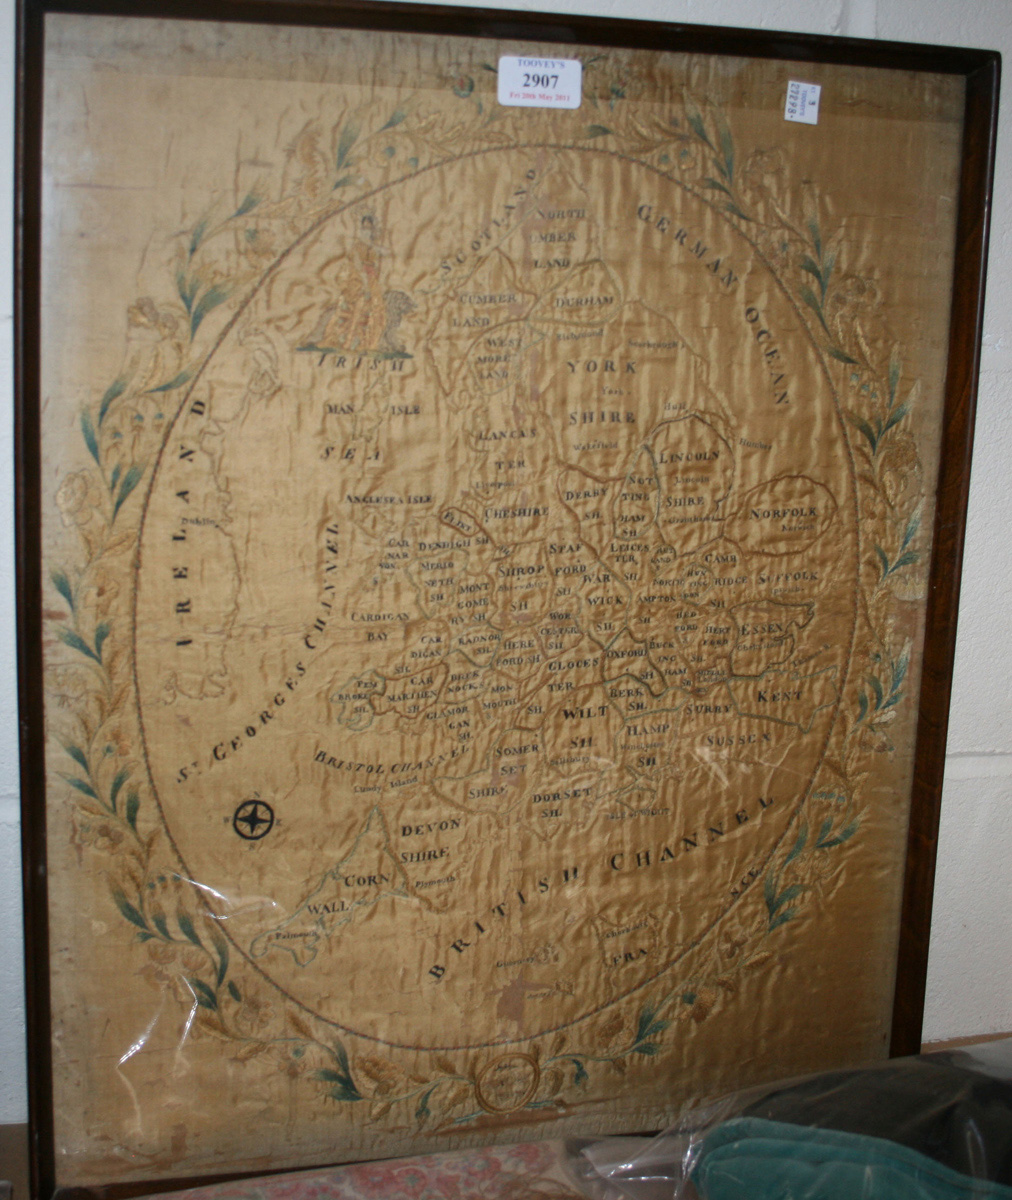 TOOVEY'S
2907
Fri 20th May 2011
TOOVEY'S
27898.
SCOTLAND
GERMAN OCEAN
NORTH
UMBER
LAND
CUMBER
LAND
DURHAM
WEST
MORE
LAND
Richmond
Scarborough
IRISH
YORK
York
SHIRE
MAN ISLE
Hull
SEA
LANCAS
TER
Wakefield
Humber
LINCOLN
Lincoln
SHIRE
ANGLESEA ISLE
FLINT
CHESHIRE
DERBY
SH.
NOT
TING
HAM
SH
NORFOLK
Norwich
IRELAND
Dublin
CAR
NAR
DENBIGH SH
MERIO
NETH
SH.
SHROP
SH
STAF
FORD
SH.
LEICES
TER
SH.
CAMB
RIDGE
SH
SUFFOLK
MONT
GOME
RY SH
WAR
WICK
SH.
ST GEORGES CHANNEL
CARDIGAN
BAY
CAR
DIGAN
SH.
RADNOR
SH.
HERE
FORD SH
WOR
CESTER
SH.
BED
FORD
HERT
FORD
ESSEX
PEM
BROKE
SH.
CAR
MARTHEN
SH
BREC
NOCK
MON
MOUTH
GLAMOR
GAN
SH.
GLOCES
TER
SH.
OXFORD
SH
BUCK
ING
HAM
BERK
SH.
SURRY
KENT
WILT
SH
HAMP
SH
SUSSEX
BRISTOL CHANNEL
Lundy Island
SOMER
SET
SHIRE
DORSET
SH.
DEVON
SHIRE
Plymouth
CORN
WALL
Falmouth
BRITISH CHANNEL
FRA
NCE